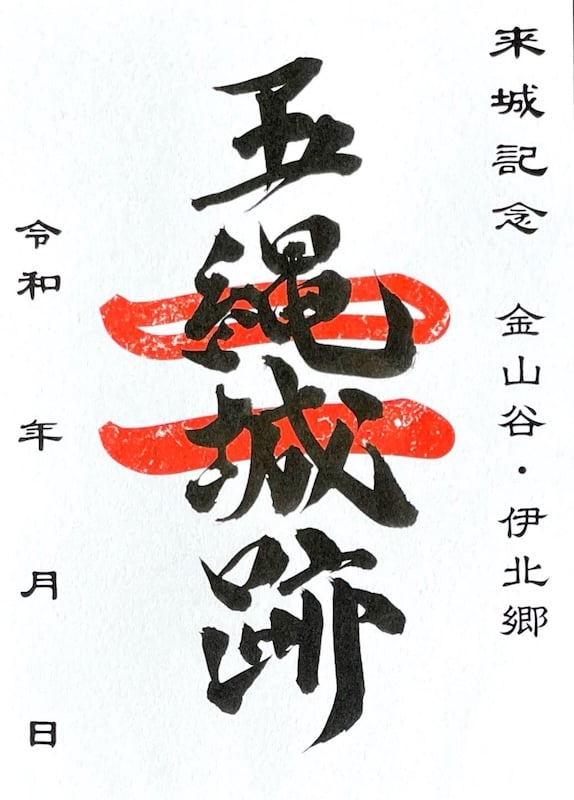 来城記念 金山谷・伊北郷
五縄城跡
令和 年 月 日